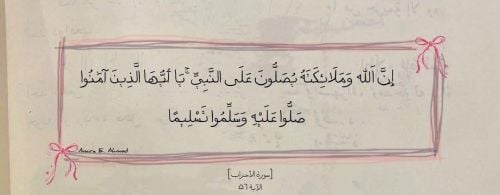 إِنَّ اللَّهَ وَمَلَائِكَتَهُ يُصَلُّونَ عَلَى النَّبِيِّ ۚ يَا أَيُّهَا الَّذِينَ آمَنُوا
صَلُّوا عَلَيْهِ وَسَلِّمُوا تَسْلِيمًا
Amira E. Ahmed
[سورة الأحزاب]
الآية ٥٦